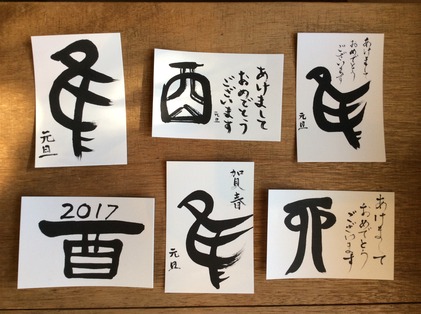 隹
元旦
あけまして
おめでとう
ございます
酉
元旦
あけまして
おめでとう
ございます
隹
元旦
2017
酉
賀春
隹
元旦
あけまして
おめでとう
ございます